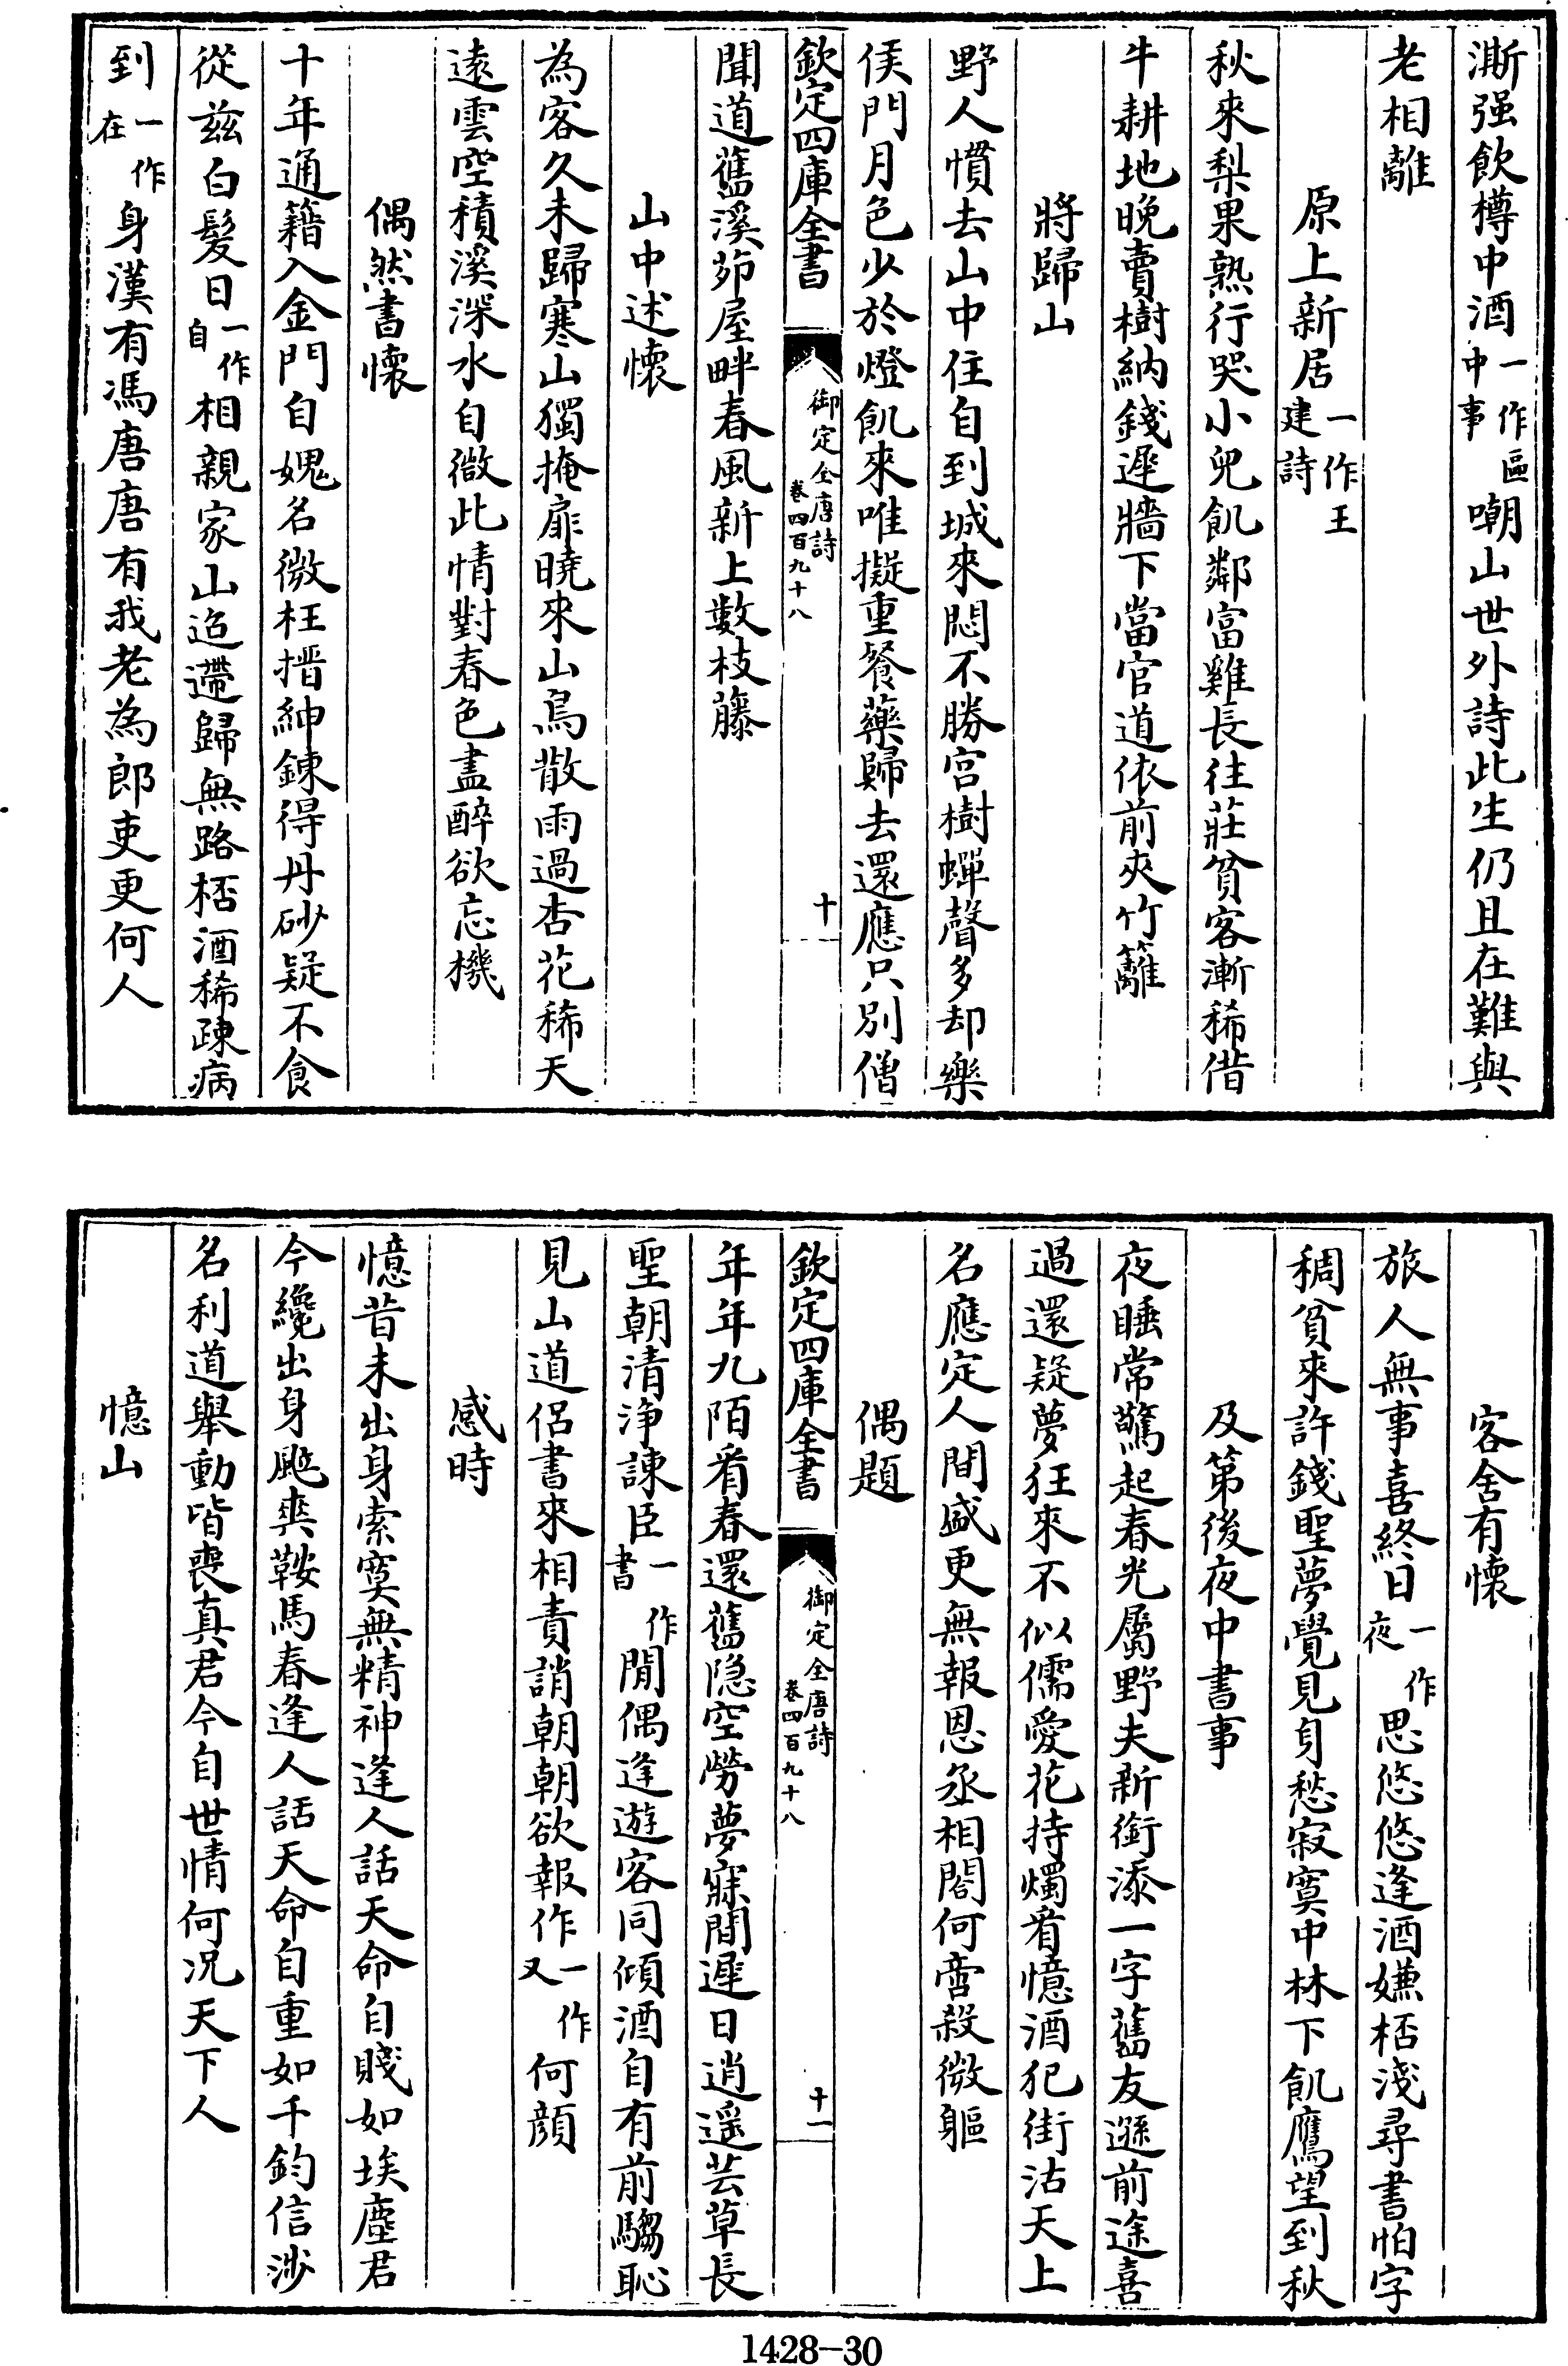 澌强飲樽中酒一作區中事嘲山世外詩此生仍且在難與
老相離
原上新居一作王建詩
秋來梨果熟行哭小兒飢鄰富雞長往莊貧客漸稀借
牛耕地晚賣樹納錢遲牆下當官道依前夾竹籬
將歸山
野人慣去山中住自到城來悶不勝宫樹蟬聲多却樂
侯門月色少於燈飢來唯擬重餐藥歸去還應只別僧
欽定四庫全書
御定全唐詩
卷四百九十八
十
聞道舊溪茆屋畔春風新上數枝藤
山中述懷
為客久未歸寒山獨掩扉曉來山鳥散雨過杏花稀天
逺雲空積溪深水自微此情對春色盡醉欲忘機
偶然書懷
十年通籍入金門自媿名微枉搢紳鍊得丹砂疑不食
從兹白髪日一作自相親家山迢遰歸無路桮酒稀疎病
到一作在身漢有馮唐唐有我老為郎吏更何人
客舍有懷
旅人無事喜終日一作夜思悠悠逢酒嫌桮淺尋書怕字
稠貧來許錢聖夢覺見身愁寂寞中林下飢鷹望到秋
及第後夜中書事
夜睡常驚起春光屬野夫新銜添一字舊友遜前途喜
過還疑夢狂來不似儒愛花持燭看憶酒犯街沽天上
名應定人間盛更無報恩丞相閤何啻殺微軀
偶題
欽定四庫全書
御定全唐詩
卷四百九十八
十一
年年九陌看春還舊隐空勞夢寐間遲日逍遥芸草長
聖朝清淨諫臣一作書閒偶逢遊客同傾酒自有前騶恥
見山道侶書來相責誚朝朝欲報作一作又何顔
感時
憶昔未出身索寞無精神逢人話天命自賤如埃塵君
今纔出身颯爽鞍馬春逢人話天命自重如千鈞信涉
名利道舉動皆喪真君今自世情何况天下人
憶山
1428-30